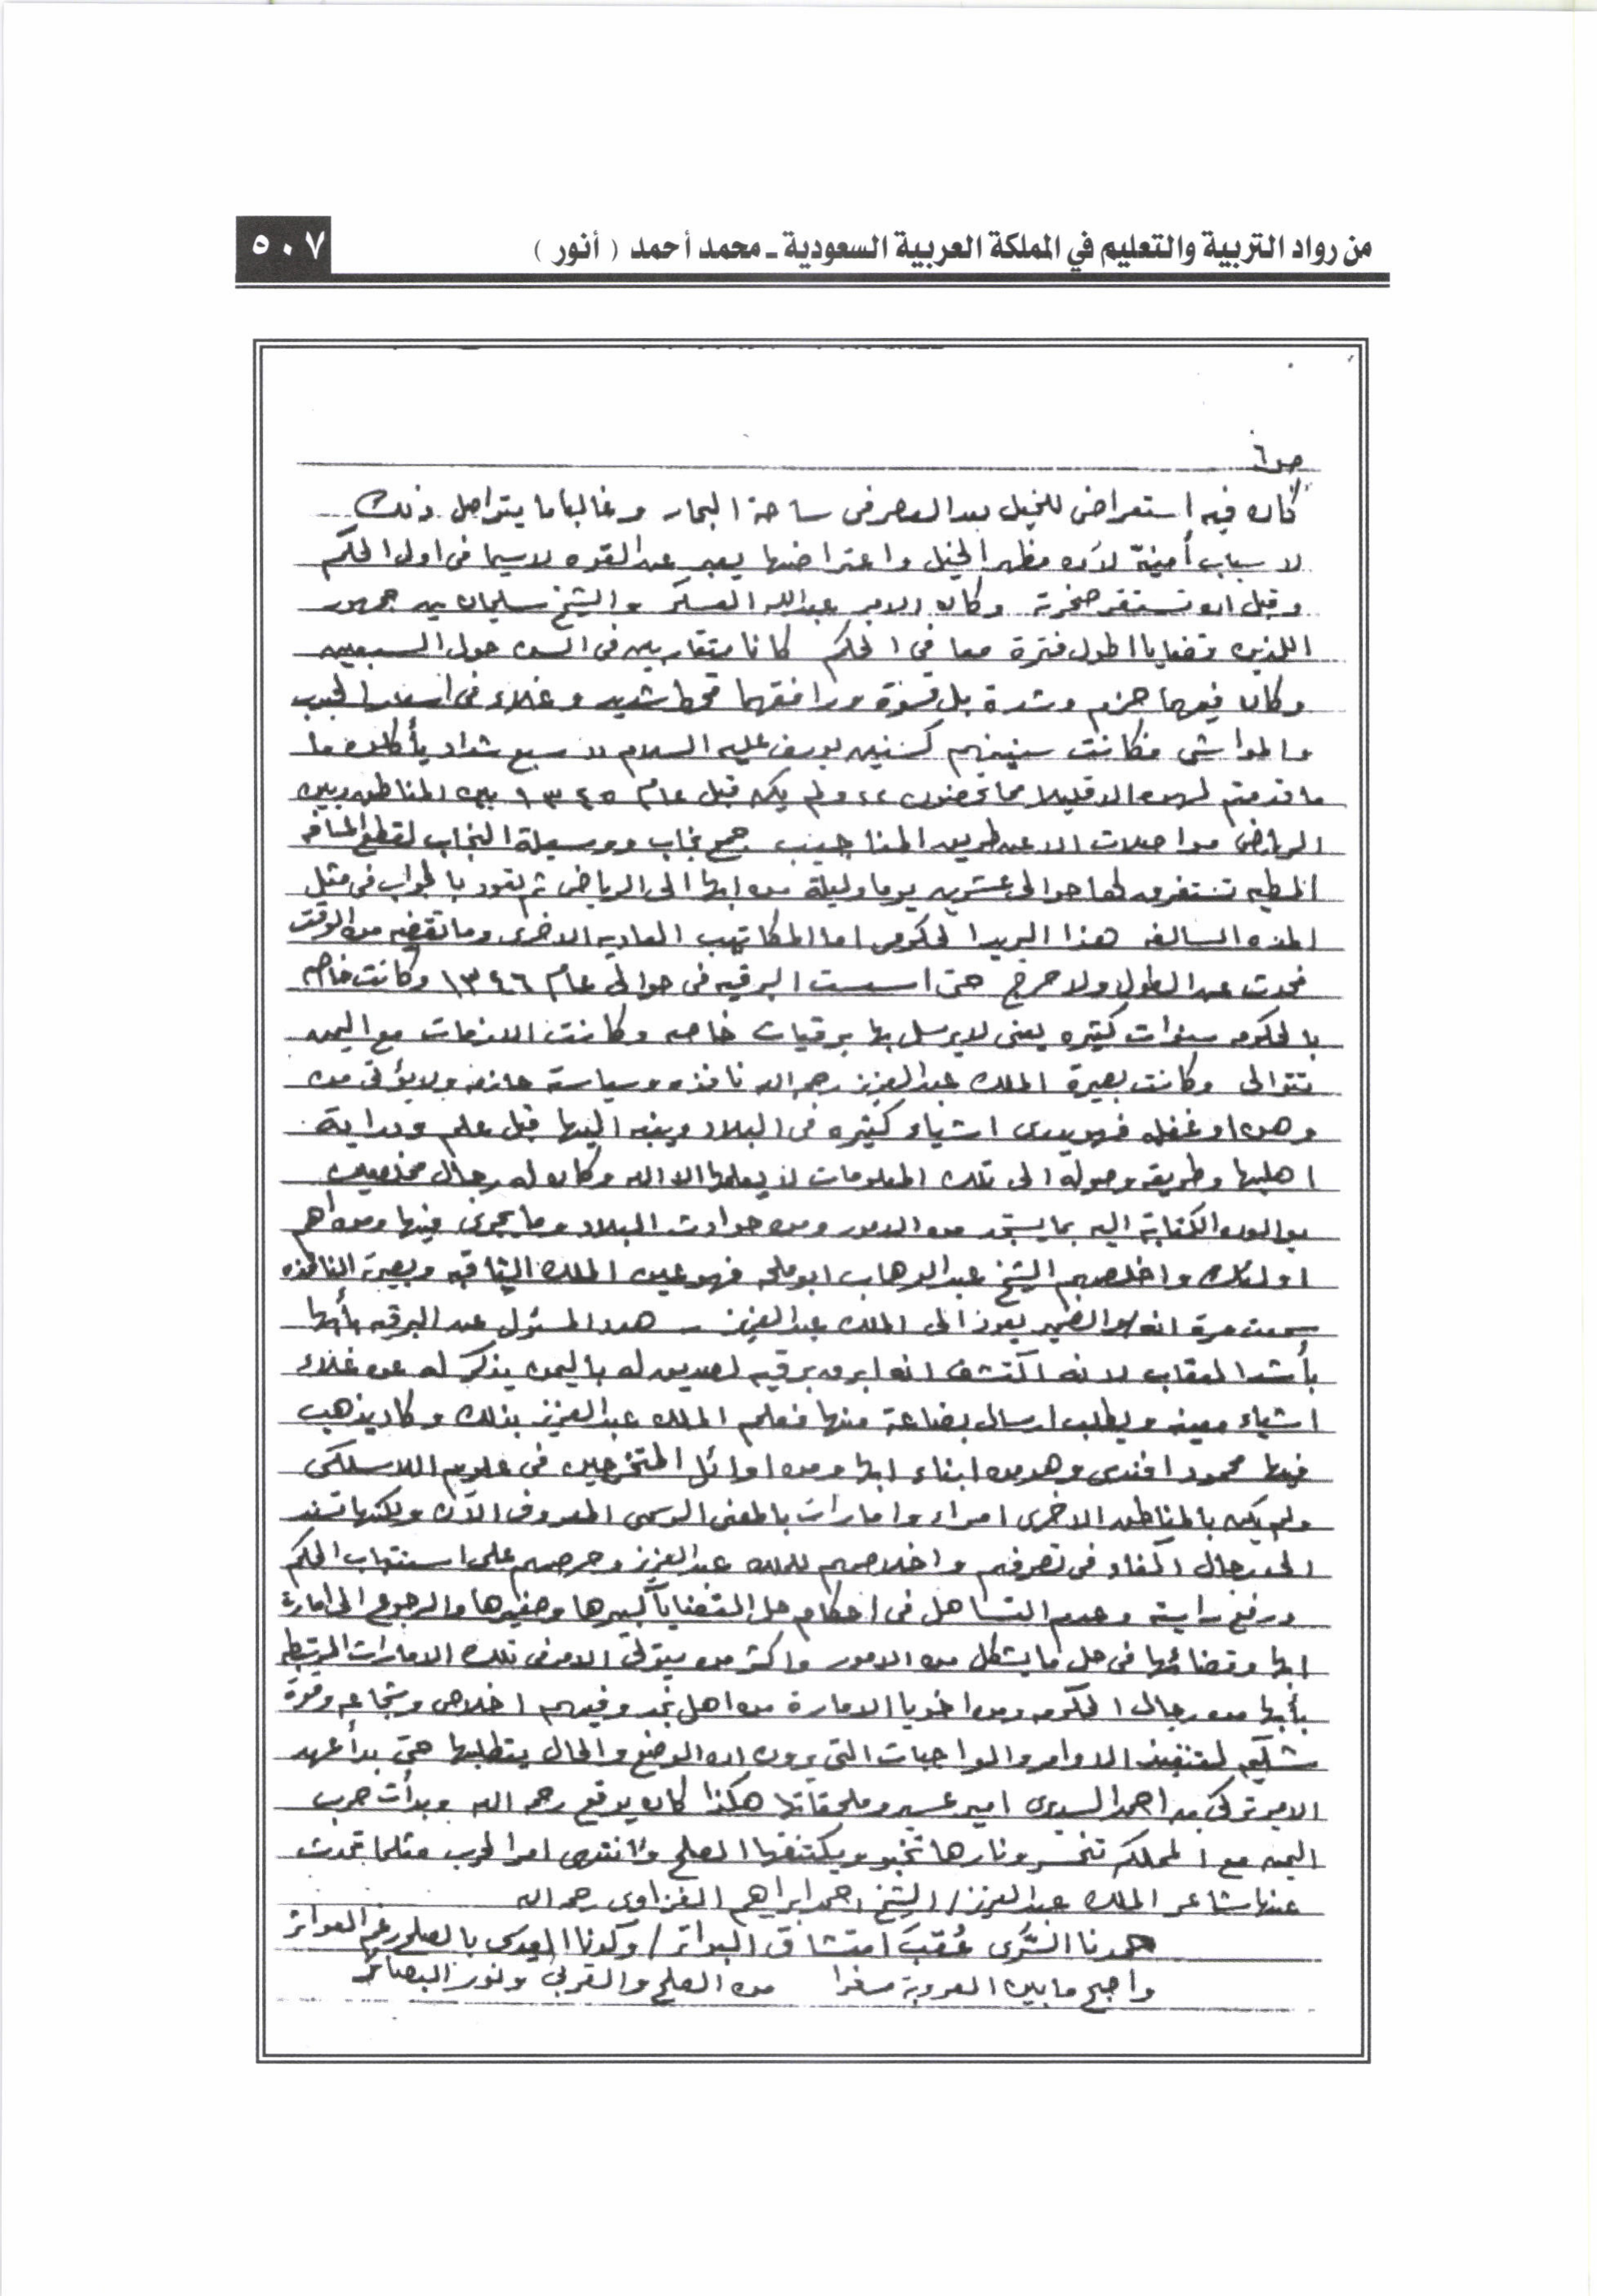 من رواد التربية والتعليم في المملكة العربية السعودية ـ محمد أحمد ( أنور )
٥٠٧
ص٦
كان فيه استعراض للخيل بعد العصر فى ساحة البحار وغالبا ما يتواصل ذلك
لاسباب أمنية لأن مظهر الخيل واعتراضها يعبر عن القوه لاسيما فى اول الحكم
وقبل ان تستقر صخرته وكان الامير عبدالله العسكر والشيخ سليمان بن جمهور
اللذين قضايا اطول فترة معا فى الحكم كانا متقاربين فى السن حول السبعين
وكان فيهما حزم وشدة بل قسوة ورافقهما قحط شديد وغلاء فى اسعار الحبوب
والمواشى فكانت سنينهم كسنين يوسف عليه السلام لا سبع شداد يأكلون ما
ما قدمتم لهن الا قليلا مما تحصنون ،، ولم يكن قبل عام ١٣٤٥ بين المناطق وبين
الرياض مواصلات الا عن طريق المناجيب جمع نجاب ووسيلة النجاب لقطع المسافه
المطيه تستغرق لها حوالى عشرين يوما وليلة من ابها الى الرياض ثم تعود بالجواب فى مثل
المده السالفه هذا البريد الحكومى اما المكاتيب العاديه الاخرى وما تقضيه من الوقت
فحدث عن الطول ولا حرج حتى اسست البرقيه فى حوالى عام ١٣٤٦ وكانت خاصه
بالحكومه سنوات كثيره يعنى لا يرسل بها برقيات خاصه وكانت الازمات مع اليمن
تتوالى وكانت بصيرة الملك عبدالعزيز رحمه الله نافذه وسياسته حازمه ولا يؤتى من
وهن او غفله فهو يدرى اشياء كثيره فى البلاد وينبه اليها قبل علم ودراية
اهلها وطريقه وصوله الى تلك المعلومات لا يعلمها الا الله وكان له رجال مخلصين
يوالون الكتابة اليه بما يستجد من الامور ومن حوادث البلاد وما يجرى فيها ومن اهم
اولئك واخلصهم الشيخ عبدالوهاب ابوملحه فهو عين الملك الثاقبه وبصيرته النافذه
سمعت مرة انه والضمير يعود الى الملك عبدالعزيز ـ هدد المسئول عن البرقيه بأبها
بأشد العقاب لانه اكتشف انه ابرق برقيه لصديق له باليمن يذكر له عن غلاء
اشياء معينه ويطلب ارسال بضاعة منها فعلم الملك عبدالعزيز بذلك وكاد يذهب
فيها محمود افندى وهو من ابناء ابها ومن اوائل المتخرجين فى علوم اللاسلكى
ولم يكن بالمناطق الاخرى امراء وامارات بالمعنى الرسمى المعروف الآن ولكنها تسند
الى رجال اكفاء فى تصرفهم واخلاصهم للملك عبدالعزيز وحرصهم على استتباب الحكم
ورفع راية وعدم التساهل فى احكام حل القضايا كبيرها وصغيرها والرجوع الى امارة
ابها وقضائها فى حل ما يشكل من الامور واكثر من يتولى الامر فى تلك الامارات المرتبطه
بأبها من رجال الحكومه ومن اخويا الامارة من اهل نجد وفيهم اخلاص وشجاعه وقوة
شكيمه لتنفيذ الاوامر والواجبات التى يرون ان الوضع والحال يتطلبها حتى بدأ عهد
الامير تركى بن احمد السديرى امير عسير وملحقاتها هكذا كان يوقع رحمه الله وبدأت حرب
اليمن مع المملكه تنحسر ونارها تخبو ويكتنفها الصلح وانتهى امر الحرب مثلما تحدث
عنها شاعر الملك عبدالعزيز/ الشيخ احمد ابراهيم الغزاوى رحمه الله
حمدنا السُّرى عُقبَ امتشاق البواتر / وكدنا العدى بالصلح رغم العواثر
واصبح ما بين العروبة مسفرا من الصلح والقربى ونور البصائر